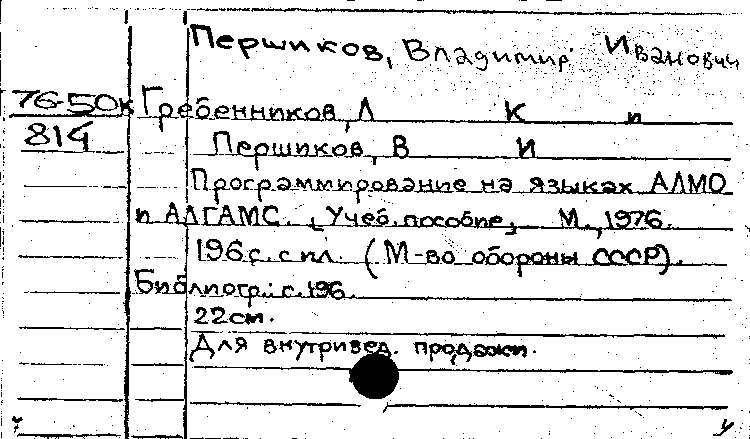 Першиков, Владимир Иванович
76-50к Гребенников, Л К и
814 Першиков, В И
Программирование на языках АЛМО
и АЛГАМС. [Учеб. пособие], М., 1976.
196 с. с ил. (М-во обороны СССР).
Библиогр.: с. 196.
22 см.
Для внутривед. продажи.